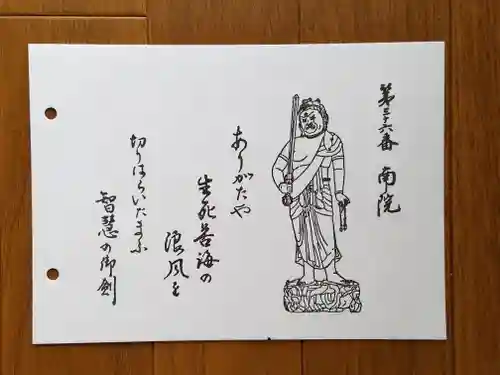 第三十六番 南院
ありがたや
生死苦海の
浪風を
切りはらいたまふ
智慧の御剣